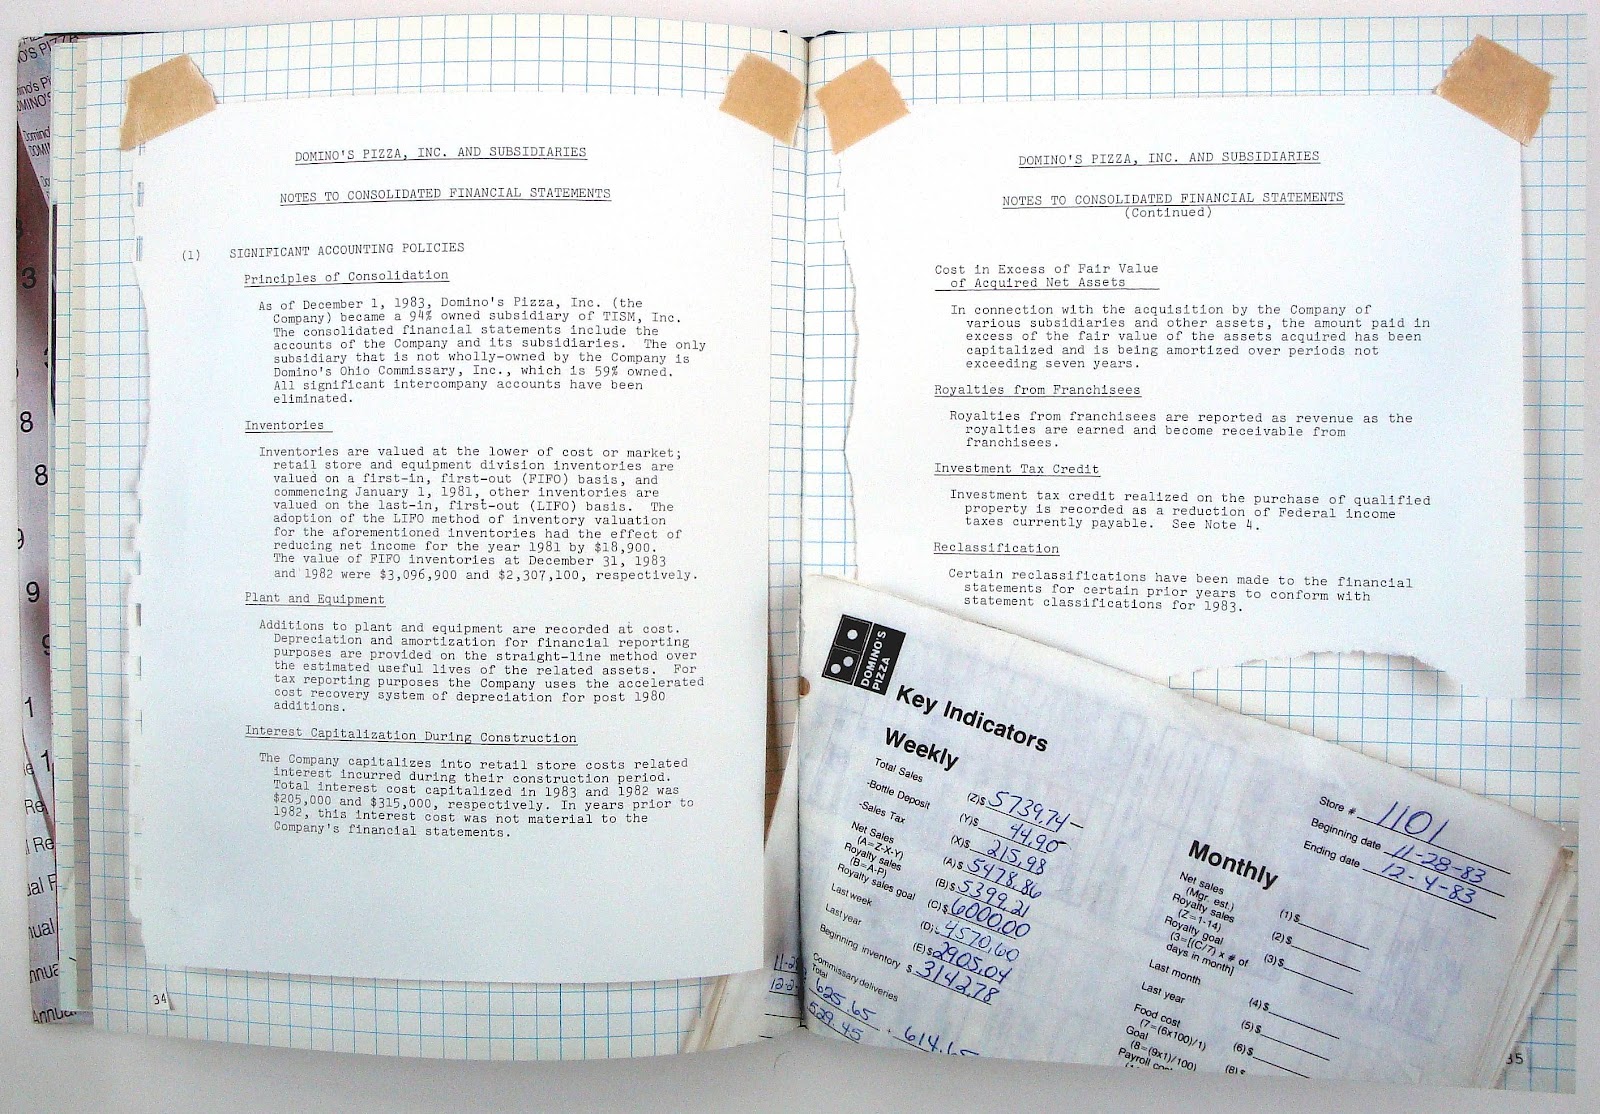 DOMINO'S PIZZA, INC. AND SUBSIDIARIES
NOTES TO CONSOLIDATED FINANCIAL STATEMENTS
(1) SIGNIFICANT ACCOUNTING POLICIES
Principles of Consolidation
As of December 1, 1983, Domino's Pizza, Inc. (the
Company) became a 94% owned subsidiary of TISM, Inc.
The consolidated financial statements include the
accounts of the Company and its subsidiaries. The only
subsidiary that is not wholly-owned by the Company is
Domino's Ohio Commissary, Inc., which is 59% owned.
All significant intercompany accounts have been
eliminated.
Inventories
Inventories are valued at the lower of cost or market;
retail store and equipment division inventories are
valued on a first-in, first-out (FIFO) basis, and
commencing January 1, 1981, other inventories are
valued on the last-in, first-out (LIFO) basis. The
adoption of the LIFO method of inventory valuation
for the aforementioned inventories had the effect of
reducing net income for the year 1981 by $18,900.
The value of FIFO inventories at December 31, 1983
and 1982 were $3,096,900 and $2,307,100, respectively.
Plant and Equipment
Additions to plant and equipment are recorded at cost.
Depreciation and amortization for financial reporting
purposes are provided on the straight-line method over
the estimated useful lives of the related assets. For
tax reporting purposes the Company uses the accelerated
cost recovery system of depreciation for post 1980
additions.
Interest Capitalization During Construction
The Company capitalizes into retail store costs related
interest incurred during their construction period.
Total interest cost capitalized in 1983 and 1982 was
$205,000 and $315,000, respectively. In years prior to
1982, this interest cost was not material to the
Company's financial statements.
34
DOMINO'S PIZZA, INC. AND SUBSIDIARIES
NOTES TO CONSOLIDATED FINANCIAL STATEMENTS
(Continued)
Cost in Excess of Fair Value
of Acquired Net Assets
In connection with the acquisition by the Company of
various subsidiaries and other assets, the amount paid in
excess of the fair value of the assets acquired has been
capitalized and is being amortized over periods not
exceeding seven years.
Royalties from Franchisees
Royalties from franchisees are reported as revenue as the
royalties are earned and become receivable from
franchisees.
Investment Tax Credit
Investment tax credit realized on the purchase of qualified
property is recorded as a reduction of Federal income
taxes currently payable. See Note 4.
Reclassification
Certain reclassifications have been made to the financial
statements for certain prior years to conform with
statement classifications for 1983.
DOMINO'S
PIZZA
Key Indicators
Weekly
Total Sales (Z)$ 5739.74
-Bottle Deposit (Y)$ 44.90
-Sales Tax (X)$ 215.98
Net Sales
(A=Z-X-Y) (A)$ 5478.86
Royalty sales
(B=A-P) (B)$ 5399.21
Royalty sales goal (C)$ 6000.00
Last week (D)$ 4570.60
Last year (E)$ 2905.04
Beginning inventory $ 3142.78
Commissary deliveries
Total
625.65 614.65
529.45
Store # 1101
Beginning date 11-28-83
Ending date 12-4-83
Monthly
Net sales
(Mgr. est.) (1)$
Royalty sales
(Z=1-14) (2)$
Royalty goal
(3=[(C/7) x # of
days in month] (3)$
Last month (4)$
Last year (5)$
Food cost
(7=(6x100)/1) (6)$
Goal
(8=(9x1)/100) (8)$
Payroll
35